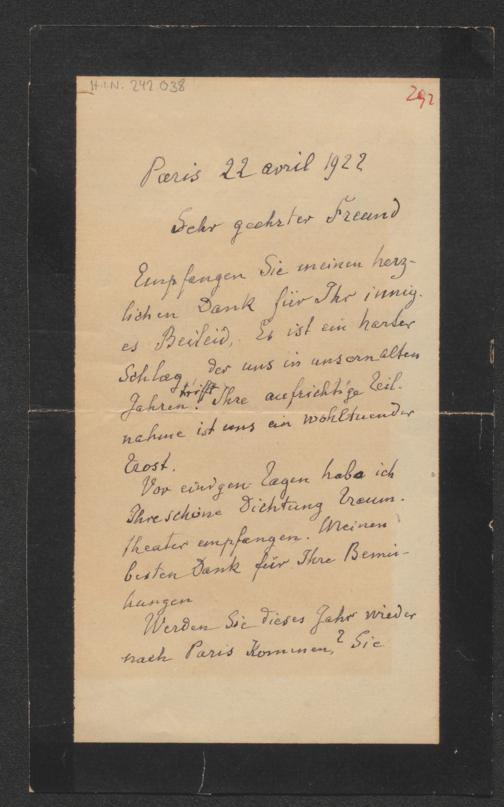 H.I.N. 242 038
292
Paris 22 avril 1922
Sehr geehrter Freund
Empfangen Sie meinen herz-
lichen Dank für Ihr innig-
es Beileid, Es ist ein harter
Schlag, der uns in unsern alten
Jahren trifft! Ihre aufrichtige Teil-
nahme ist uns ein wohltuender
Trost.
Vor einigen Tagen habe ich
Ihre schöne Dichtung Traum-
theater empfangen. Meinen
besten Dank für Ihre Bemü-
hungen
Werden Sie dieses Jahr wieder
nach Paris kommen? Sie